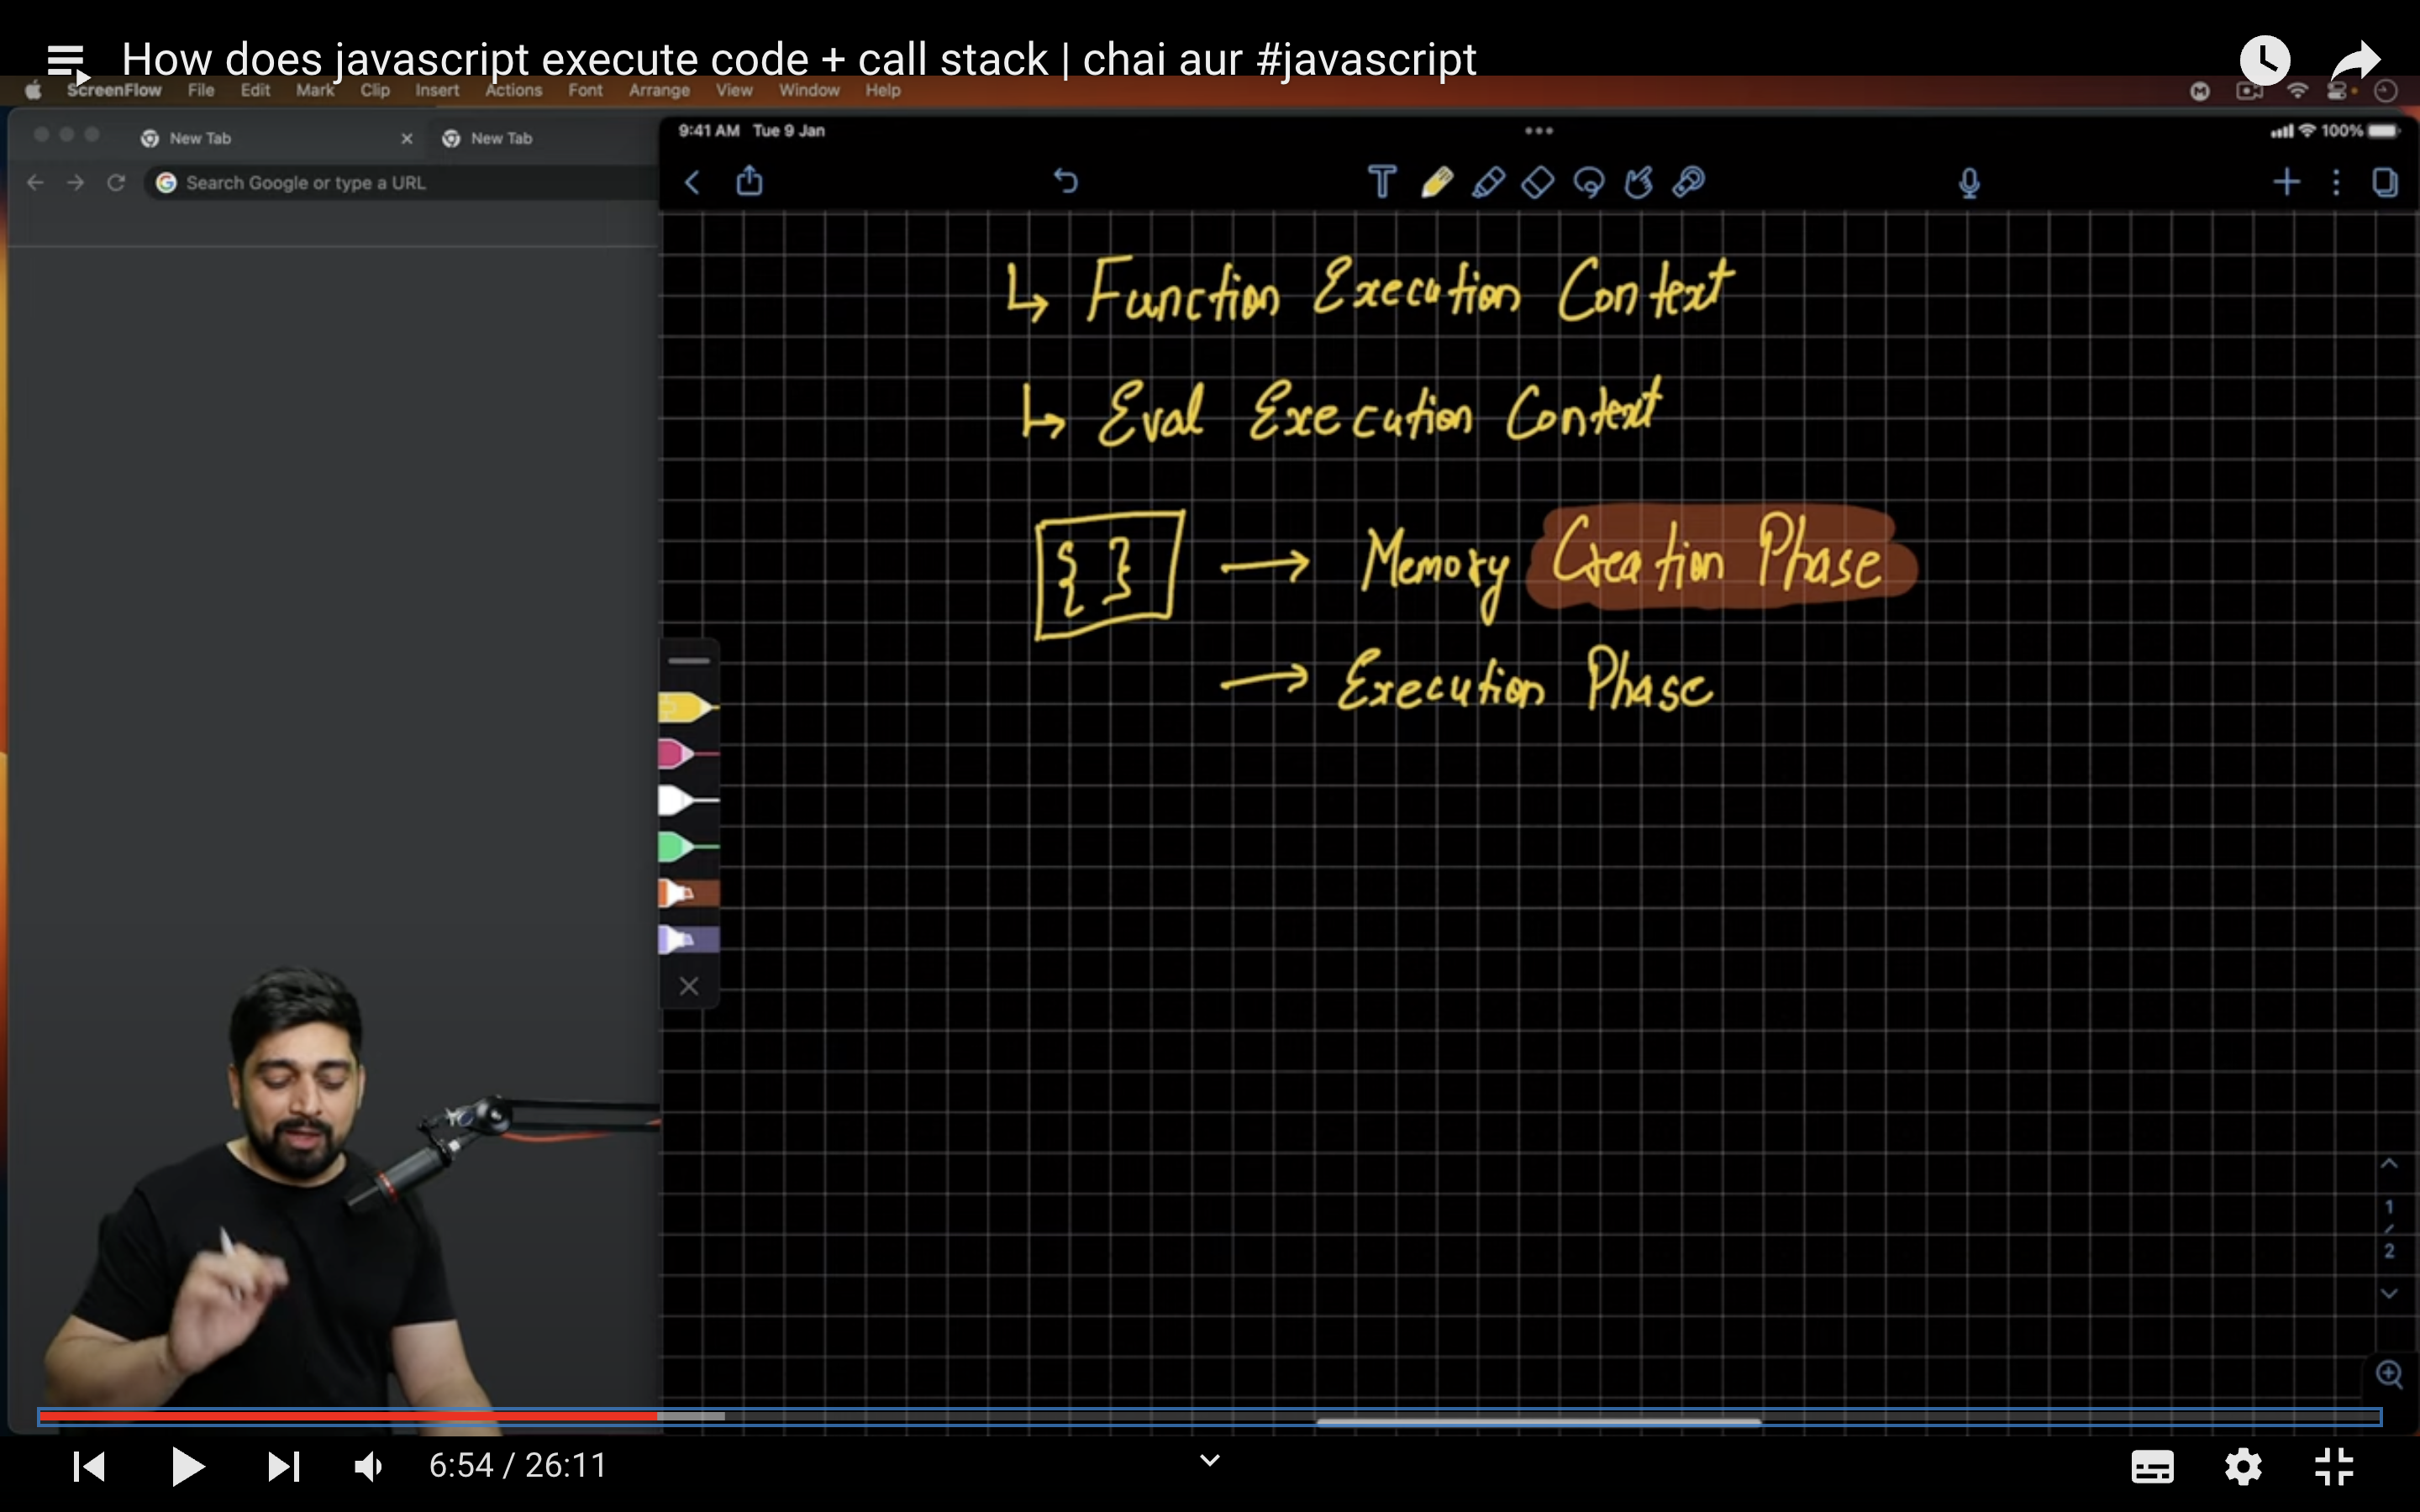 How does javascript execute code + call stack | chai aur #javascript
ScreenFlow File Edit Mark Clip Insert Actions Font Arrange View Window Help
New Tab New Tab
Search Google or type a URL
9:41 AM Tue 9 Jan 100%
↳ Function Execution Context
↳ Eval Execution Context
{ } → Memory Creation Phase
→ Execution Phase
1
/
2
6:54 / 26:11